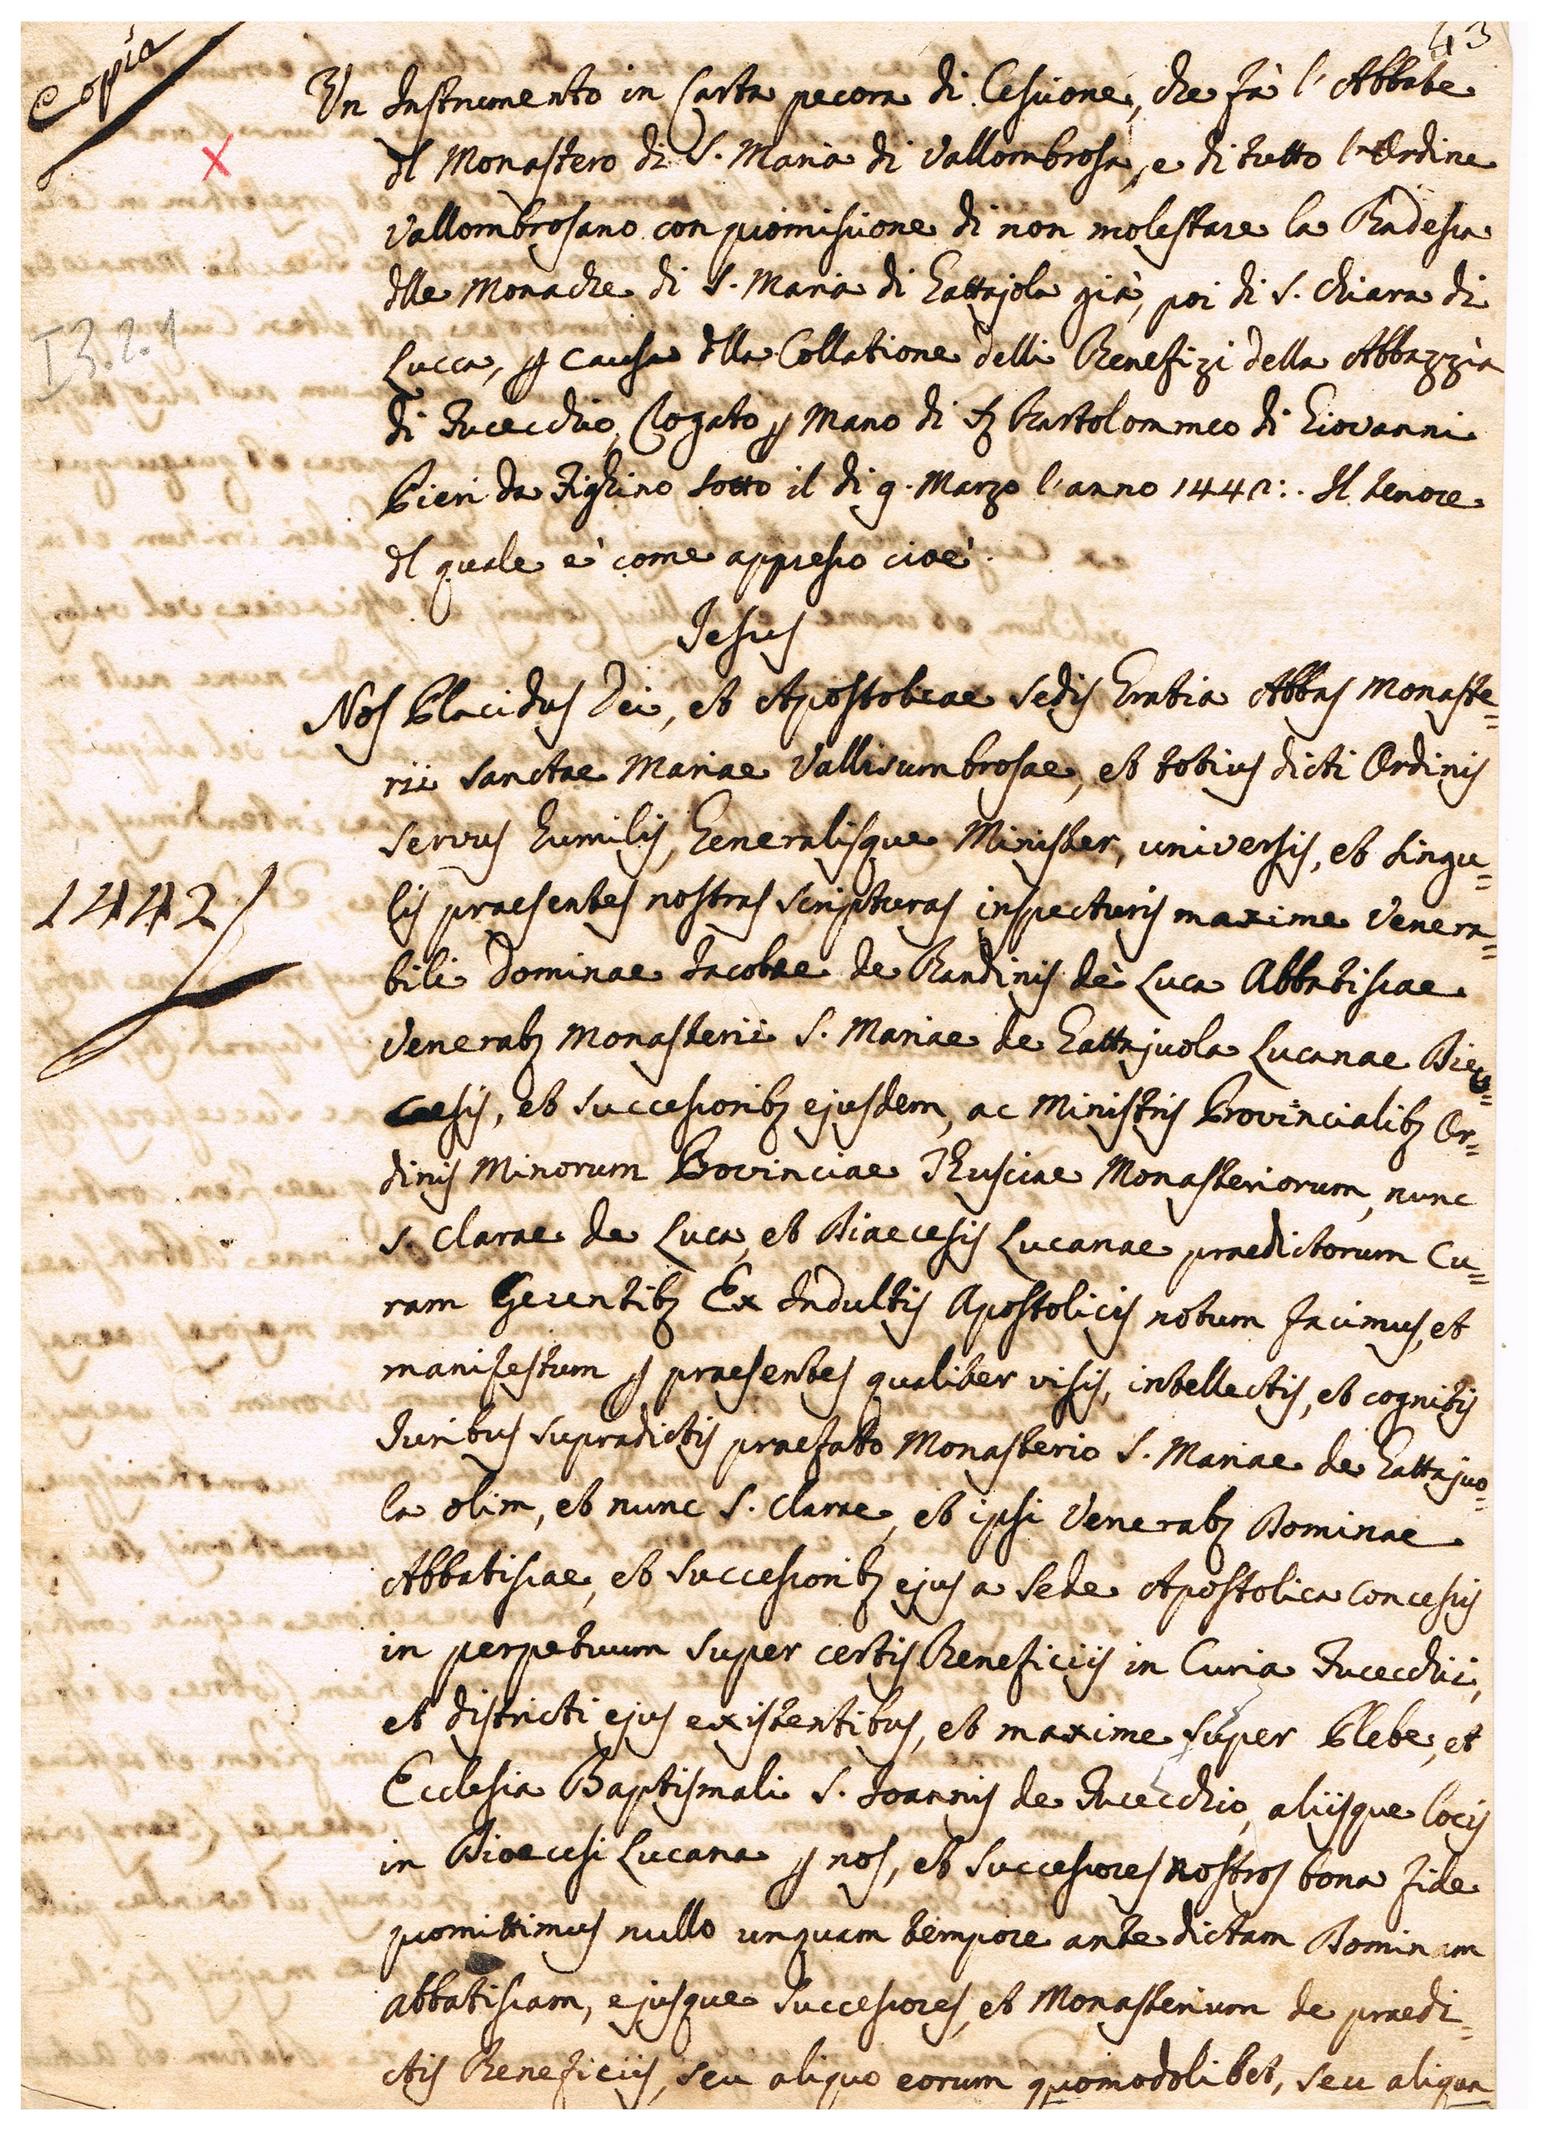 43
Coppia
Un Instrumento in Carta pecora di Cessione, che fà l'Abbate
dl Monastero di S. Maria di Vallombrosa, e di tutto l'Ordine
Vallombrosano con promissione di non molestare la Badessa
dlle Monache di S. Maria di Gattajola già, poi di S. Chiara di
I 3.2.1
Lucca, p causa dlla Collatione delli Benefizi della Abbazzia
di Fucecchio, Rogato p mano di Bartolommeo di Giovanni
Pieri da Fighino sotto il di 9. Marzo l'anno 1442:. Il tenore
dl quale è come appresso cioè.
Jesus
Nos Placidus Dei, et Apostolicae Sedis Gratia Abbas Monaste=
rii Sanctae Mariae Vallisumbrosae, et totius dicti Ordinis
servus humilis, Generalisque Minister, universis, et singu=
1442
lis praesentes nostras scripturas inspecturis maxime Venera=
bili Dominae Jacobae de Bandinis de Luca Abbatissae
Venerab; Monasterii S. Mariae de Gattajuola Lucanae Dioe=
cesis, et successorib; ejusdem, ac Ministris Provincialib; Or=
dinis Minorum Provinciae Thusciae Monasteriorum, nunc
S. Clarae de Luca, et Diaecesis Lucanae praedictorum Cu=
ram Gerentib; Ex Indultis Apostolicis notum facimus, et
manifestum p praesentes qualiter visis, intellectis, et cognitis
Juribus supradictis praefato Monasterio S. Mariae de Gattajuo=
la olim, et nunc S. Clarae, et ipsi Venerab; Dominae
Abbatissae, et successorib; ejus a Sede Apostolica concessis
in perpetuum super certis Beneficiis in Curia Fucecchii,
et districti ejus existentibus, et maxime super Plebe, et
Ecclesia Baptismali S. Joannis de Fucecchio, aliisque locis
in Dioecesi Lucana p nos, et successores nostros bona fide
promittimus nullo unquam tempore ante dictam Dominam
abbatissam, ejusque successores, et Monasterium de praedi=
ctis Beneficiis, seu aliquo eorum quomodolibet, seu aliqua